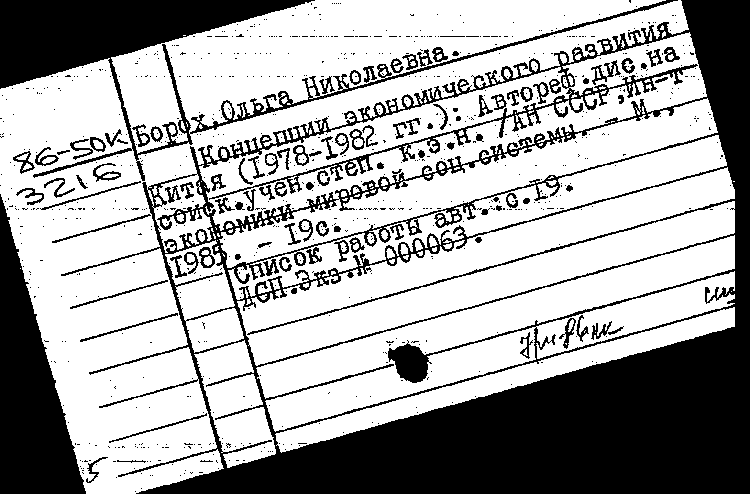 86-50К
3216
Борох, Ольга Николаевна.
Концепции экономического развития
Китая (I978-I982 гг.): Автореф.дис.на
соиск.учен.степ. к.э.н. /АН СССР.Ин-т
экономики мировой соц.системы. - М.,
I985. - I9с.
Список работы авт.:с.I9.
ДСП.Экз.№ 000063.
5